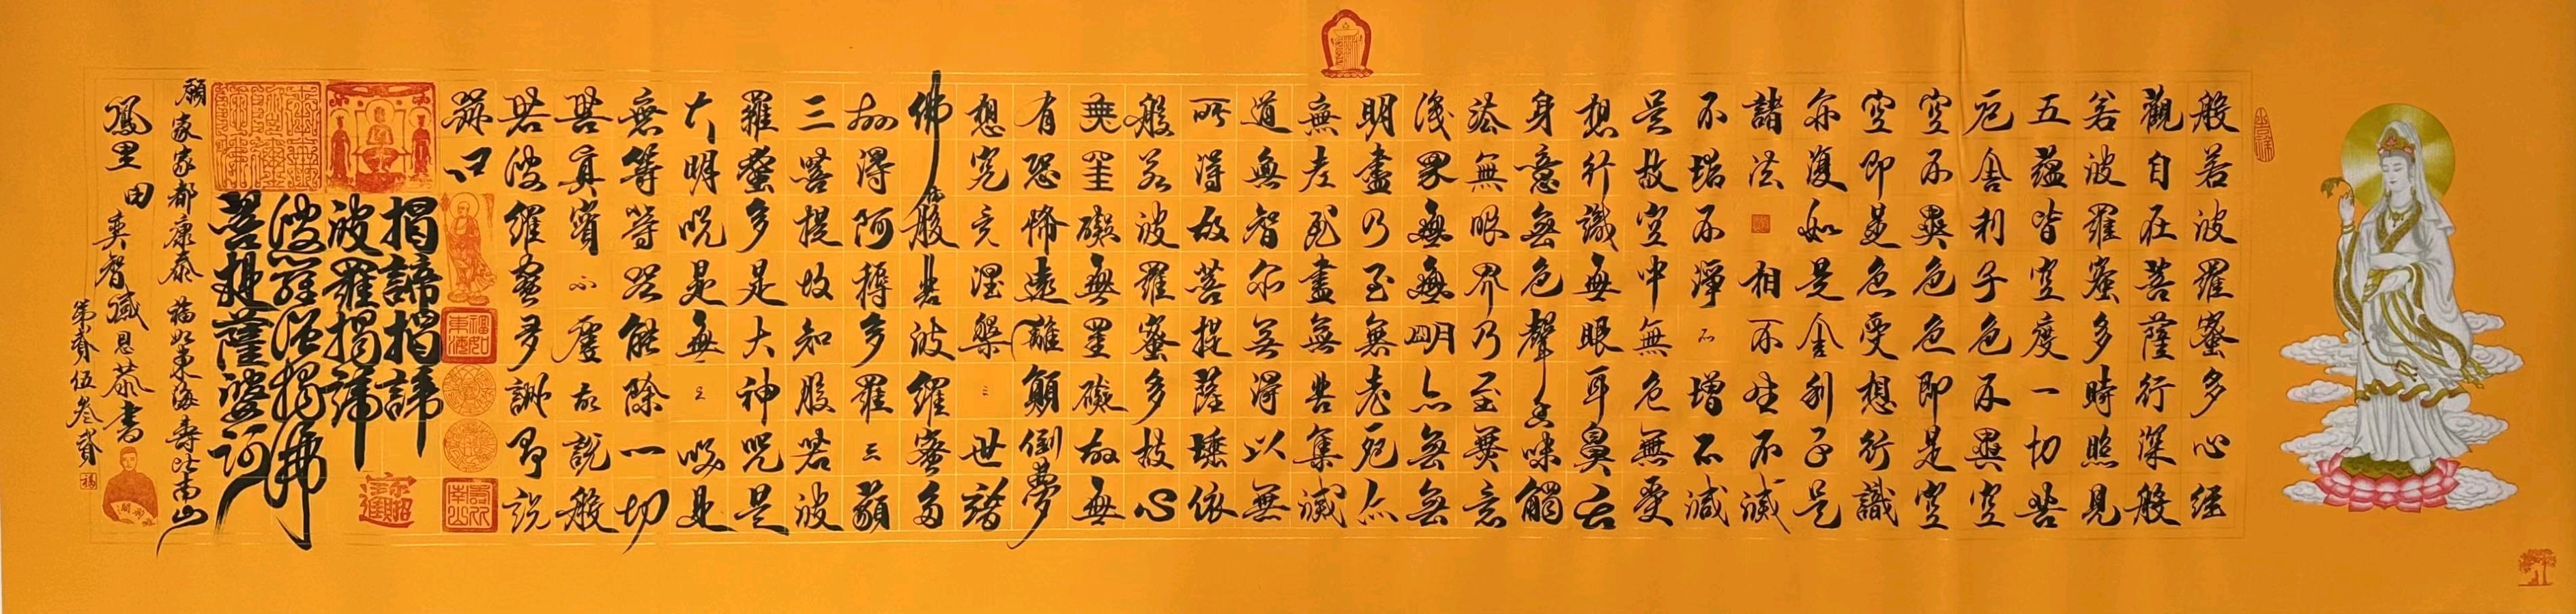 般若波羅蜜多心經
觀自在菩薩行深般
若波羅蜜多時照見
五蘊皆空度一切苦
厄舍利子色不異空
空不異色色即是空
空即是色受想行識
亦復如是舍利子是
諸法相不生不滅
不垢不淨不增不減
是故空中無色無受
想行識無眼耳鼻舌
身意無色聲香味觸
法無眼界乃至無意
識界無無明亦無無
明盡乃至無老死亦
無老死盡無苦集滅
道無智亦無得以無
所得故菩提薩埵依
般若波羅蜜多故心
無罣礙無罣礙故無
有恐怖遠離顛倒夢
想究竟涅槃三世諸
佛依般若波羅蜜多
故得阿耨多羅三藐
三菩提故知般若波
羅蜜多是大神咒是
大明咒是無上咒是
無等等咒能除一切
苦真實不虛故說般
若波羅蜜多咒即說
咒曰
福如東海
壽比南山
揭諦揭諦
波羅揭諦
波羅僧揭
菩提薩婆訶
願家家都康泰福如東海壽比南山
鳳里田奕智感恩恭書